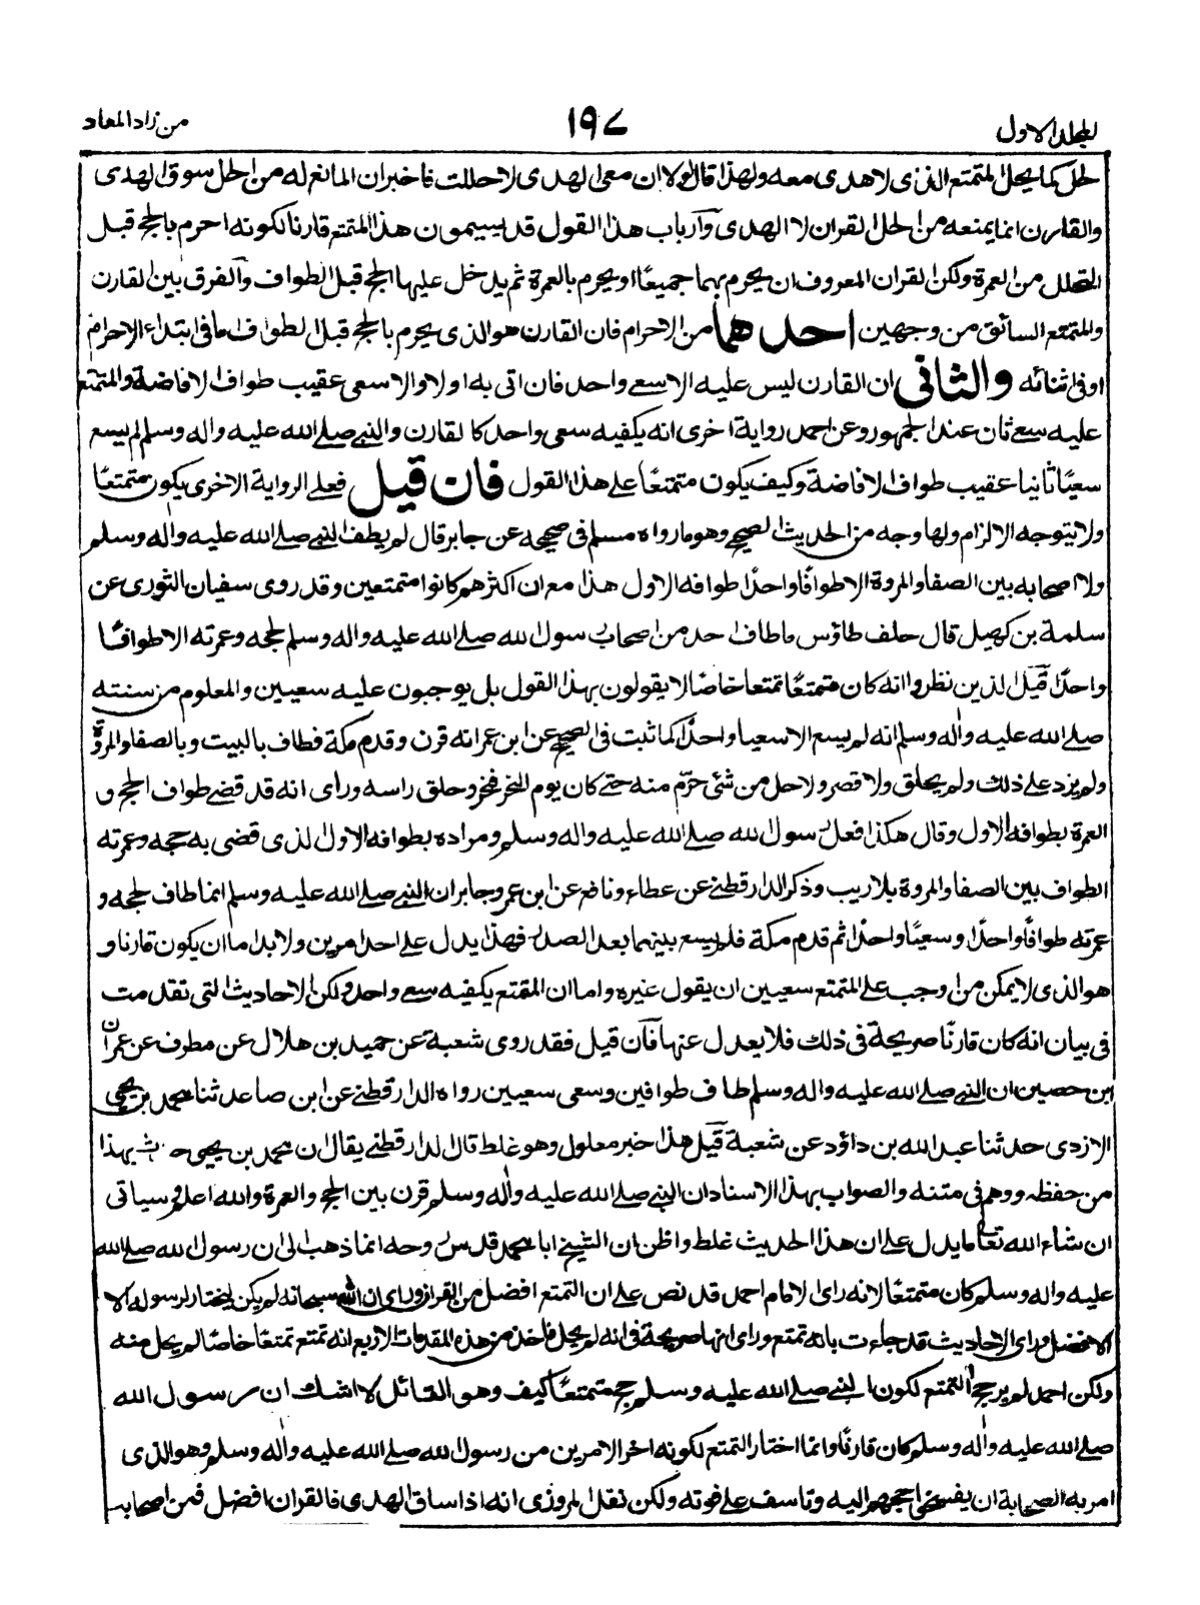 المجلد الاول
١٩٧
من زاد المعاد
لحل كما يحل المتمتع الذى لا هدى معه ولهذا قال لولا ان معى الهدى لاحللت فاخبر ان المانع له من الحل سوق الهدى
والقارن انما يمنعه من الحل القران لا الهدى وارباب هذا القول قد يسمون هذا المتمتع قارنا لكونه احرم بالحج قبل
التحلل من العمرة ولكن القران المعروف ان يحرم بهما جميعًا او يحرم بالعمرة ثم يدخل عليها الحج قبل الطواف والفرق بين القارن
والمتمتع السائق من وجهين احدهما من الاحرام فان القارن هو الذى يحرم بالحج قبل الطواف اما فى ابتداء الاحرام
او فى اثنائه والثانى ان القارن ليس عليه الا سعى واحد فان اتى به اولا والا سعى عقيب طواف الافاضة والمتمتع
عليه سعى ثان عند الجمهور وعن احمد رواية اخرى انه يكفيه سعى واحد كالقارن والنبى صلى الله عليه واله وسلم لم يسع
سعيًا ثانيا عقيب طواف الافاضة وكيف يكون متمتعًا على هذا القول فان قيل فعلى الرواية الاخرى يكون متمتعًا
ولا يتوجه الالزام ولها وجه من الحديث الصحيح وهو ما رواه مسلم فى صحيحه عن جابر قال لم يطف النبى صلى الله عليه واله وسلم
ولا اصحابه بين الصفا والمروة الا طوافًا واحدًا طوافه الاول هذا مع ان اكثرهم كانوا متمتعين وقد روى سفيان الثورى عن
سلمة بن كهيل قال حلف طاؤس ما طاف احد من اصحاب رسول الله صلى الله عليه واله وسلم لحجه وعمرته الا طوافًا
واحدًا قيل الذين نظروا انه كان متمتعًا تمتعا خاصًا لا يقولون بهذا القول بل يوجبون عليه سعيين والمعلوم من سنته
صلى الله عليه واله وسلم انه لم يسع الا سعيا واحدًا كما ثبت فى الصحيح عن ابن عمر انه قرن وقدم مكة فطاف بالبيت وبالصفا والمروة
ولم يزد على ذلك ولم يحلق ولا قصر ولا حل من شئى حرم منه حتى كان يوم النحر فنحر وحلق راسه وراى انه قد قضى طواف الحج و
العمرة بطوافه الاول وقال هكذا فعل رسول الله صلى الله عليه واله وسلم ومراده بطوافه الاول الذى قضى به حجه وعمرته
الطواف بين الصفا والمروة بلا ريب وذكر الدارقطنى عن عطاء ونافع عن ابن عمر وجابر ان النبى صلى الله عليه وسلم انما طاف لحجه و
عمرته طوافًا واحدًا وسعيًا واحدًا ثم قدم مكة فلم يسع بينهما بعد الصدر فهذا يدل على احد امرين ولا بد اما ان يكون قارنا و
هو الذى لا يمكن من اوجب على المتمتع سعيين ان يقول غيره واما ان المتمتع يكفيه سعى واحد ولكن الاحاديث التى تقدمت
فى بيان انه كان قارنًا صريحة فى ذلك فلا يعدل عنها فان قيل فقد روى شعبة عن حميد بن هلال عن مطرف عن عمران
ابن حصين ان النبى صلى الله عليه واله وسلم طاف طوافين وسعى سعيين رواه الدارقطنى عن ابن صاعد ثنا محمد بن يحيى
الازدى حدثنا عبد الله بن داؤد عن شعبة قيل هذا خبر معلول وهو غلط قال الدارقطنى يقال ان محمد بن يحيى حدث بهذا
من حفظه ووهم فى متنه والصواب بهذا الاسناد ان النبى صلى الله عليه واله وسلم قرن بين الحج والعمرة والله اعلم وسياتى
ان شاء الله تعالى ما يدل على ان هذا الحديث غلط واظن ان الشيخ ابا محمد قدس روحه انما ذهب الى ان رسول الله صلى الله
عليه واله وسلم كان متمتعًا لانه راى الامام احمد قد نص على ان التمتع افضل من القران وراى ان الله سبحانه لم يكن ليختار لرسوله الا
الافضل وراى الاحاديث قد جاءت بانه تمتع وراى انها صريحة فى انه لم يحل فاخذ من هذه المقدمات الاربع انه تمتع تمتعًا خاصًا لم يحل منه
ولكن احمد لم يرجح التمتع لكون النبى صلى الله عليه وسلم حج متمتعًا كيف وهو القائل لا اشك ان رسول الله
صلى الله عليه واله وسلم كان قارنًا وانما اختار التمتع لكونه اخر الامرين من رسول الله صلى الله عليه واله وسلم وهو الذى
امر به الصحابة ان يفسخوا حجهم اليه وتاسف على فوته ولكن نقل المروزى انه اذا ساق الهدى فالقران افضل فمن اصحابه